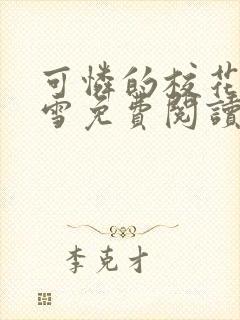 可憐的校花
雪免費閱讀
李克才